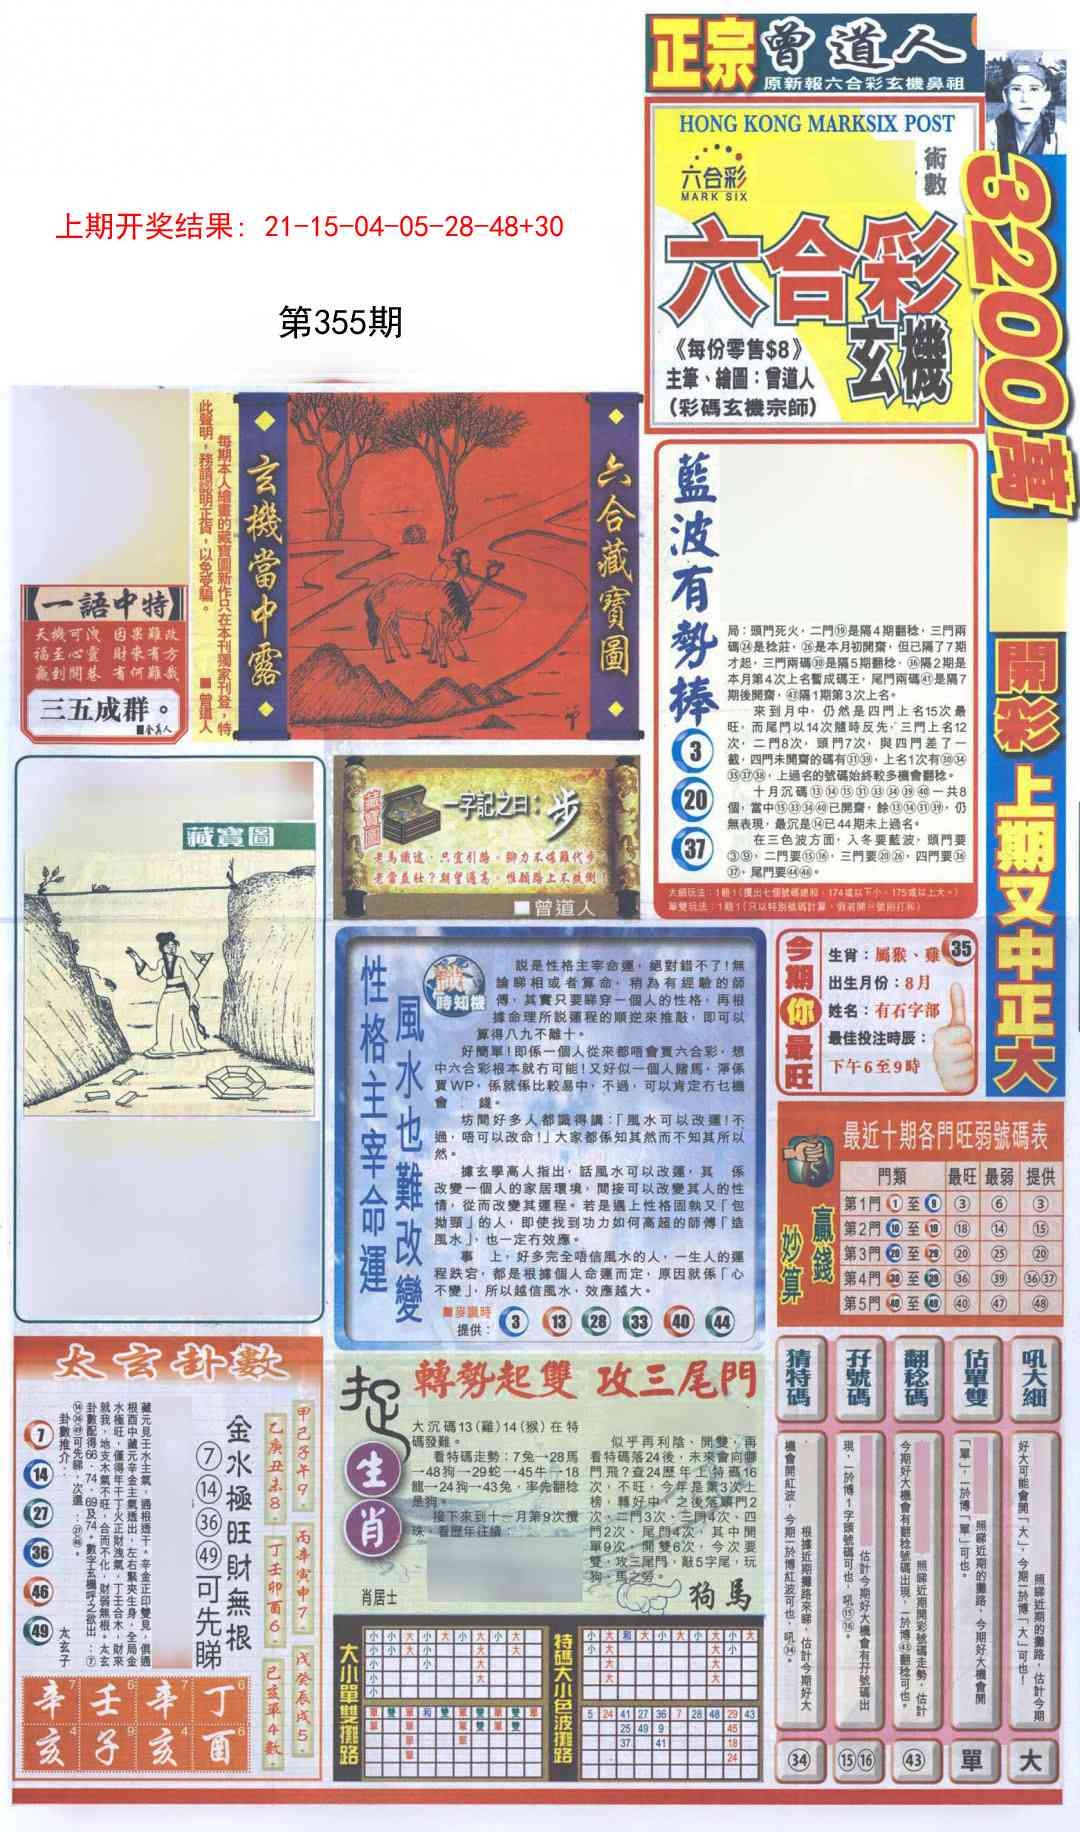 正宗曾道人
原新報六合彩玄機鼻祖
HONG KONG MARKSIX POST
六合彩
MARK SIX
術數
六合彩
玄機
《每份零售$8》
主筆、繪圖：曾道人
(彩碼玄機宗師)
3200萬
開彩 上期又中正大
上期开奖结果: 21-15-04-05-28-48+30
第355期
一語中特
天機可洩 因果難改
福至心靈 財來有方
贏到開巷 有何難哉
三五成群。
每期本人繪畫的藏寶圖新作只在本刊獨家刊登，特
此聲明，務請認明正貨，以免受騙。
■曾道人
玄機當中露
六合藏寶圖
藍波有勢捧
3
20
37
局：頭門死火，二門⑲是隔4期翻稔，三門兩
碼㉔是稔莊，㉖是本月初開齋，但已隔了7期
才起，三門兩碼㉚是隔5期翻稔，㊱隔2期是
本月第4次上名暫成碼王，尾門兩碼㊶是隔7
期後開齋，㊸隔1期第3次上名。
來到月中，仍然是四門上名15次最
旺，而尾門以14次隨時反先，三門上名12
次，二門8次，頭門7次，與四門差了一
截，四門未開齋的碼有㉛㊴，上名1次有㉚㉞
㉟㊲㊳，上過名的號碼始終較多機會翻稔。
十月沉碼⑬⑭⑮㉛㉝㉞㊴㊵一共8
個，當中⑮㉝㉞㊵已開齋，餘⑬⑭㉛㊴，仍
無表現，最沉是⑭已44期未上過名。
在三色波方面，入冬要藍波，頭門要
③⑨，二門要⑮⑯，三門要⑳㉖，四門要㊱
㊲，尾門要㊹㊽。
大細玩法：1賠1(攪出七個號碼總和，174或以下小，175或以上大。)
單雙玩法：1賠1(只以特別號碼計算，假若開
藏寶圖
藏寶圖
一字記之曰：步
老馬識途，只宜引路。腳力不堪難代步
老當益壯？期望過高。惟願路上不跌倒！
■曾道人
性格主宰命運
風水也難改變
識時知機
說是性格主宰命運，絕對錯不了！無
論睇相或者算命，稍為有經驗的師
傅，其實只要睇穿一個人的性格，再根
據命理所說運程的順逆來推敲，即可以
算得八九不離十。
好簡單！即係一個人從來都唔會買六合彩，想
中六合彩根本就冇可能！又好似一個人賭馬，淨係
買WP，係就係比較易中，不過，可以肯定冇乜機
會 錢。
坊間好多人都識得講：「風水可以改運！不
過，唔可以改命！」大家都係知其然而不知其所以
然。
據玄學高人指出，話風水可以改運，其 係
改變一個人的家居環境，間接可以改變其人的性
情，從而改變其運程。若是遇上性格固執又「包
拗頸」的人，即使找到功力如何高超的師傅「造
風水」，也一定冇效應。
事 上，好多完全唔信風水的人，一生人的運
程跌宕，都是根據個人命運而定，原因就係「心
不變」，所以越信風水，效應越大。
■麥識時
提供： 3 13 28 33 40 44
今期你最旺
生肖：屬猴、雞 35
出生月份：8月
姓名：有石字部
最佳投注時辰：
下午6至9時
贏錢妙算
最近十期各門旺弱號碼表
門類 最旺 最弱 提供
第1門①至⑨ ③ ⑥ ③
第2門⑩至⑲ ⑱ ⑭ ⑮
第3門⑳至㉙ ⑳ ㉕ ⑳
第4門㉚至㊴ ㊱ ㊴ ㊱㊲
第5門㊵至㊾ ㊵ ㊼ ㊽
太玄卦數
甲己子午9.
乙庚丑未8.
丙辛寅申7.
丁壬卯酉6.
戊癸辰戌5.
己亥單4數.
金水極旺財無根
⑦⑭㊱㊾可先睇
藏元見壬水主氣，通根透干。辛金正印雙見，俱通
根酉中藏元辛金主氣透出，左右緊夾生身，全局金
水極旺，僅得年干丁火正財洩氣，丁壬合木，財來
就我，地支木氣不旺，合而不化，財弱無根。太玄
卦數配得66、74、69及74。數字玄機呼之欲出：⑦
⑭㊱㊾可先睇，次選：㉗㊻。
卦數推介：
太玄子
7
14
27
36
46
49
辛7 壬6 辛7 丁6
亥4 子9 亥4 酉6
捉生肖
轉勢起雙 攻三尾門
大沉碼13(雞)14(猴)在特
碼發難。
看特碼走勢：7兔→28馬
→48狗→29蛇→45牛→18
龍→24狗→43兔，率先翻稔
是狗。
接下來到十一月第9次攪
珠，看歷年往績：
肖居士
似乎再利陰、開雙，再
看特碼落24後，未來會向哪
門飛？查24歷年上特碼16
次，不旺，今年是第3次上
榜，轉好中，之後落頭門2
次、二門3次、三門4次、四
門2次、尾門4次，其中開
單9次。開雙6次，今次要
雙，攻三尾門，敲5字尾，玩
狗、馬之旁。
狗馬
大小單雙攤路
特碼大小色波攤路
5 24 41 27 36 7 28 48 29 43
25 49 9 45
37 41 18
24
猜特碼
孖號碼
翻稔碼
估單雙
吼大細
根據近期攤路來睇，估計今期好大
機會開紅波，今期一於博紅波可也，吼㉞。
估計今期好大機會有孖號碼出
現，一於博1字頭號碼可也，吼⑮⑯。
照睇近期開彩號碼走勢，估計
今期好大機會有翻稔號碼出現，一於博㊸翻稔可也。
照睇近期的攤路，今期好大機會開
「單」，一於博「單」可也。
照睇近期的攤路，估計今期
好大可能會開「大」，今期一於博「大」可也！
㉞
⑮⑯
㊸
單
大